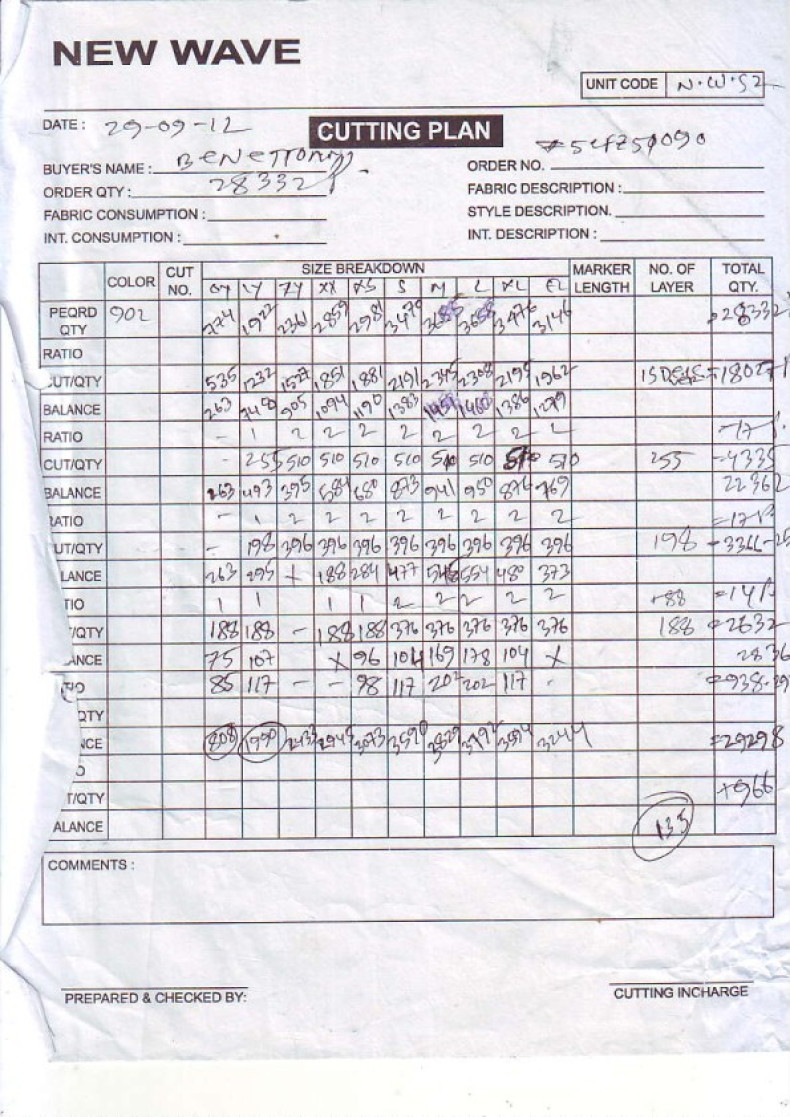 NEW WAVE
UNIT CODE N.W.S2
DATE : 29-09-12
CUTTING PLAN
BUYER'S NAME :
ORDER NO.
ORDER QTY : 28332
FABRIC DESCRIPTION :
FABRIC CONSUMPTION :
STYLE DESCRIPTION.
INT. CONSUMPTION :
INT. DESCRIPTION :
COLOR CUT NO. SIZE BREAKDOWN MARKER LENGTH NO. OF LAYER TOTAL QTY.
XX XS S M L XL EL
PEQRD QTY 902 1922 2361 2859 2981 3479 3685 3658 3476 3146 28332
RATIO
CUT/QTY 535 1232 1527 1851 1881 2191 2345 2308 2195 1962
BALANCE 263 748 905 1094 1190 1383 1457 1460 1386 1279
RATIO - 1 2 2 2 2 2 2 2 2
CUT/QTY - 255 510 510 510 510 510 510 510 510 255 4335
BALANCE 263 493 395 584 680 873 941 950 876 769 22362
RATIO - 1 2 2 2 2 2 2 2 2
UT/QTY - 198 396 396 396 396 396 396 396 396 198
LANCE 263 295 x 188 284 477 545 554 480 373
TIO 1 1 1 1 2 2 2 2 2
/QTY 188 188 - 188 188 376 376 376 376 376 188 2632
ANCE 75 107 x 96 104 169 178 104 x 2836
85 117 - - 98 117 202 202 117 -
QTY
NCE 808 1990 2433 2945 3073 3590 3244 =29298
O
T/QTY +966
ALANCE 135
COMMENTS :
PREPARED & CHECKED BY:
CUTTING INCHARGE